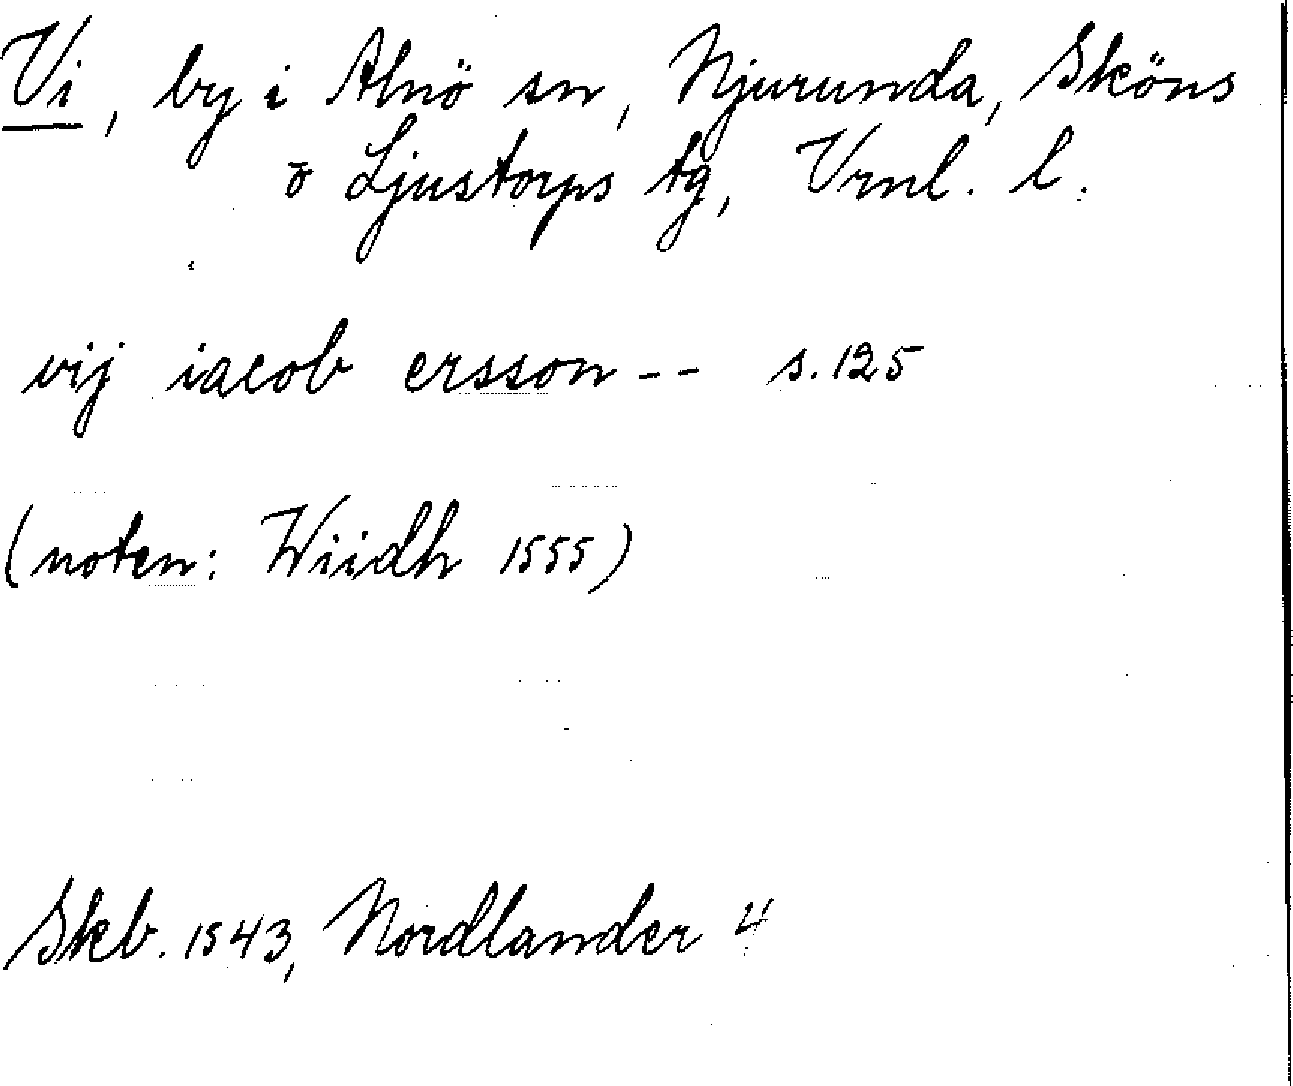 Vi, by i Alnö sn, Njurunda, Sköns
o Ljustorps tg, Vrnl. l.
vij iacob ersson -- s. 125
(noten: Wiidh 1555)
Skb. 1543, Nordlander 4